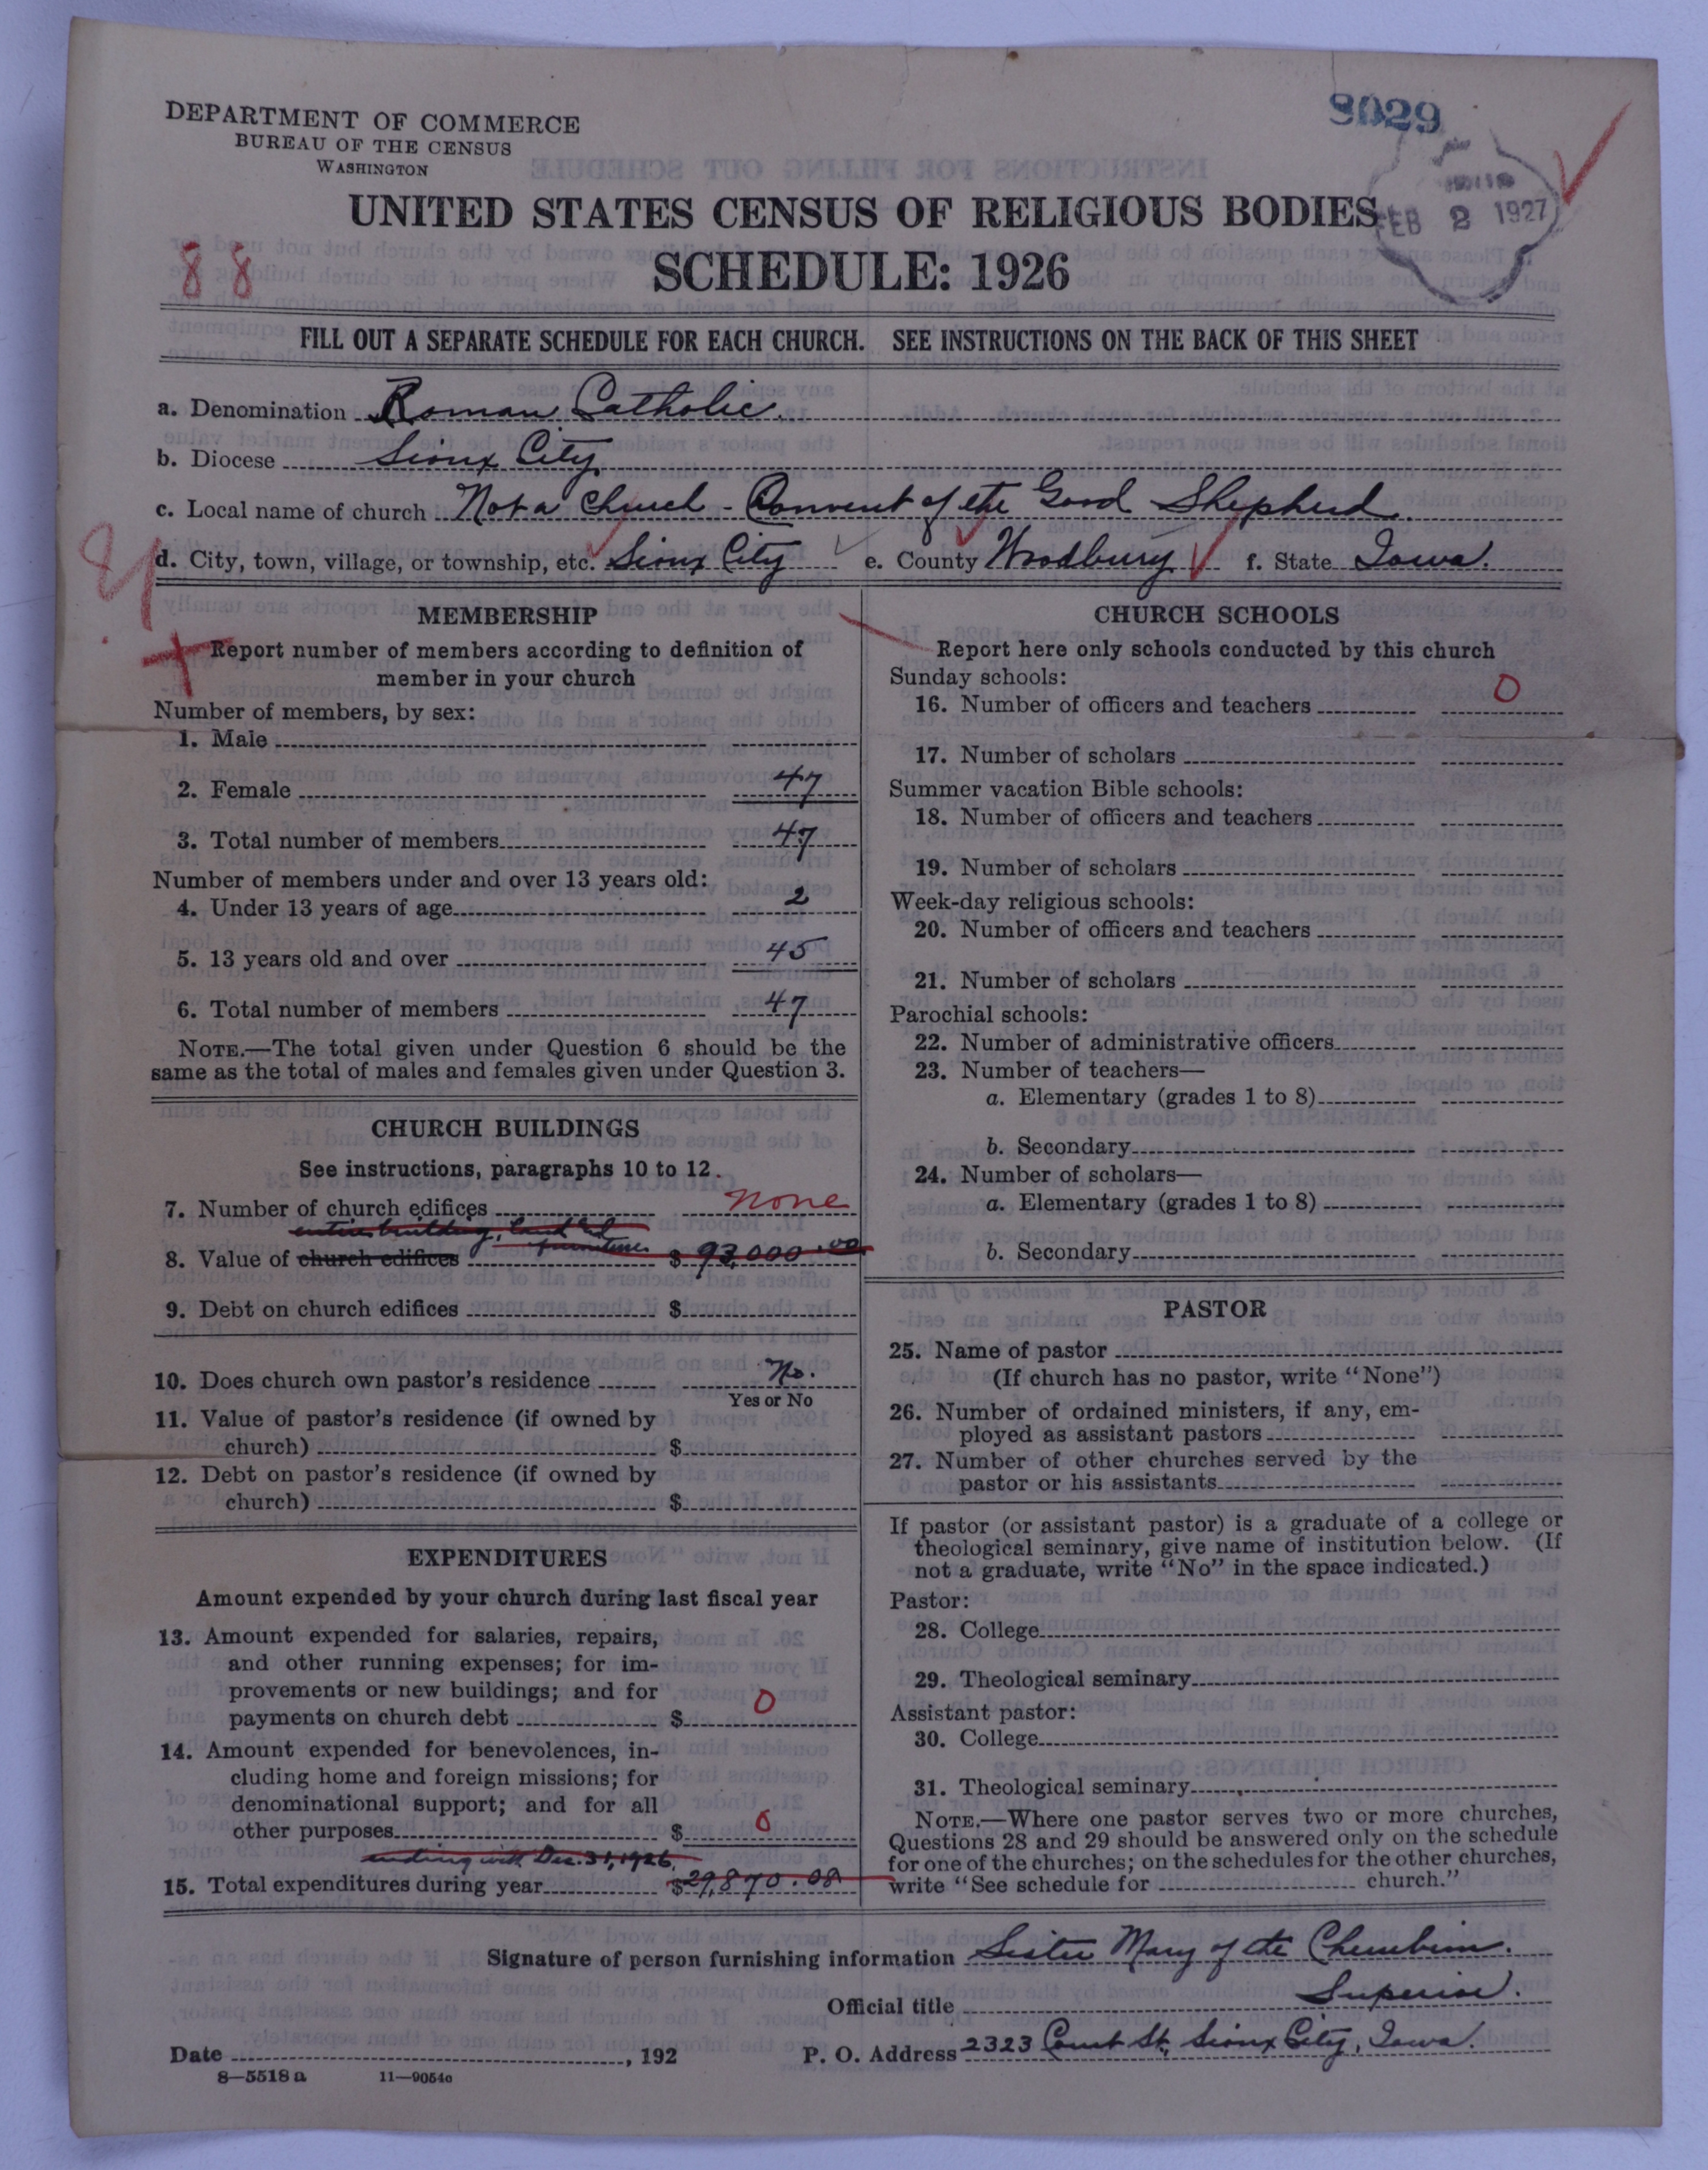 DEPARTMENT OF COMMERCE
BUREAU OF THE CENSUS
WASHINGTON
8029
FEB 2 1927
UNITED STATES CENSUS OF RELIGIOUS BODIES
SCHEDULE: 1926
88
FILL OUT A SEPARATE SCHEDULE FOR EACH CHURCH. SEE INSTRUCTIONS ON THE BACK OF THIS SHEET
a. Denomination Roman Catholic.
b. Diocese Sioux City
c. Local name of church Not a Church - Convent of the Good Shepherd.
d. City, town, village, or township, etc. Sioux City e. County Woodbury f. State Iowa.
MEMBERSHIP
Report number of members according to definition of
member in your church
Number of members, by sex:
1. Male
2. Female 47
3. Total number of members 47
Number of members under and over 13 years old:
4. Under 13 years of age 2
5. 13 years old and over 45
6. Total number of members 47
NOTE.—The total given under Question 6 should be the
same as the total of males and females given under Question 3.
CHURCH BUILDINGS
See instructions, paragraphs 10 to 12.
7. Number of church edifices none
entire building, land and
furniture
8. Value of church edifices $ 93,000.00
9. Debt on church edifices $
10. Does church own pastor's residence No.
Yes or No
11. Value of pastor's residence (if owned by
church) $
12. Debt on pastor's residence (if owned by
church) $
EXPENDITURES
Amount expended by your church during last fiscal year
13. Amount expended for salaries, repairs,
and other running expenses; for im-
provements or new buildings; and for
payments on church debt $ 0
14. Amount expended for benevolences, in-
cluding home and foreign missions; for
denominational support; and for all
other purposes $ 0
ending with Dec. 31, 1926.
15. Total expenditures during year $29,870.08
CHURCH SCHOOLS
Report here only schools conducted by this church
Sunday schools:
16. Number of officers and teachers 0
17. Number of scholars
Summer vacation Bible schools:
18. Number of officers and teachers
19. Number of scholars
Week-day religious schools:
20. Number of officers and teachers
21. Number of scholars
Parochial schools:
22. Number of administrative officers
23. Number of teachers—
a. Elementary (grades 1 to 8)
b. Secondary
24. Number of scholars—
a. Elementary (grades 1 to 8)
b. Secondary
PASTOR
25. Name of pastor
(If church has no pastor, write "None")
26. Number of ordained ministers, if any, em-
ployed as assistant pastors
27. Number of other churches served by the
pastor or his assistants
If pastor (or assistant pastor) is a graduate of a college or
theological seminary, give name of institution below. (If
not a graduate, write "No" in the space indicated.)
Pastor:
28. College
29. Theological seminary
Assistant pastor:
30. College
31. Theological seminary
NOTE.—Where one pastor serves two or more churches,
Questions 28 and 29 should be answered only on the schedule
for one of the churches; on the schedules for the other churches,
write "See schedule for church."
Signature of person furnishing information Sister Mary of the Cherubim.
Official title Superior.
Date , 192 P. O. Address 2323 Court St, Sioux City, Iowa.
8—5518 a 11—9054c